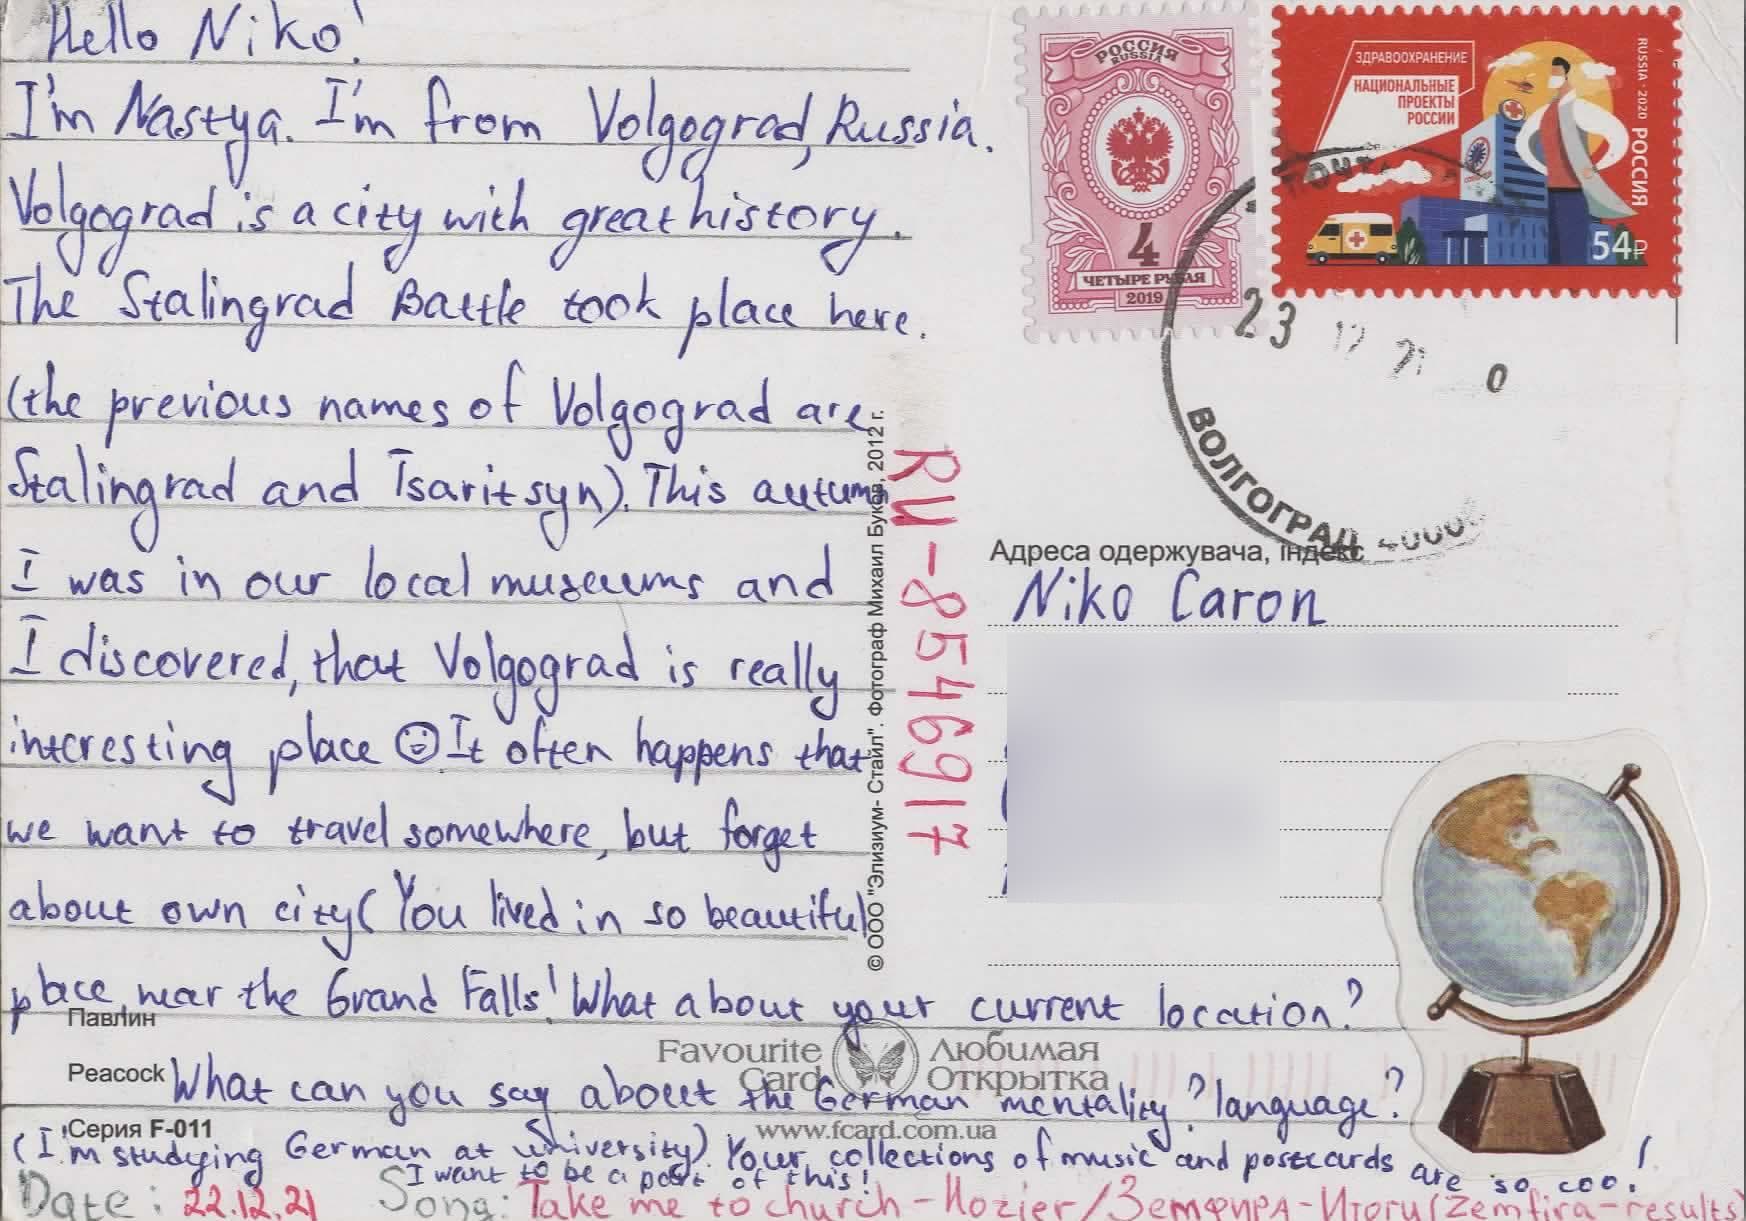 Hello Niko!
I'm Nastya. I'm from Volgograd, Russia.
Volgograd is a city with great history.
The Stalingrad Battle took place here.
(the previous names of Volgograd are
Stalingrad and Tsaritsyn). This autumn
I was in our local museums and
I discovered, that Volgograd is really
interesting place ☺ It often happens that
we want to travel somewhere, but forget
about own city( You lived in so beautiful
place, near the Grand Falls! What about your current location?
What can you say about the German mentality? language?
(I'm studying German at university). Your collections of music and postcards are so cool!
I want to be a part of this!
Date: 22.12.21 Song: Take me to church - Hozier / Земфира - Итоги (Zemfira - results)
Павлин
Peacock
Серия F-011
Favourite
Card
Любимая
Открытка
www.fcard.com.ua
© ООО "Элизиум- Стайл". Фотограф Михаил Буков, 2012 г.
RU-8546917
РОССИЯ
RUSSIA
4
ЧЕТЫРЕ РУБЛЯ
2019
ЗДРАВООХРАНЕНИЕ
НАЦИОНАЛЬНЫЕ
ПРОЕКТЫ
РОССИИ
RUSSIA · 2020 РОССИЯ
54₽
23 12 21 0
ВОЛГОГРАД
Адреса одержувача, індекс
Niko Caron